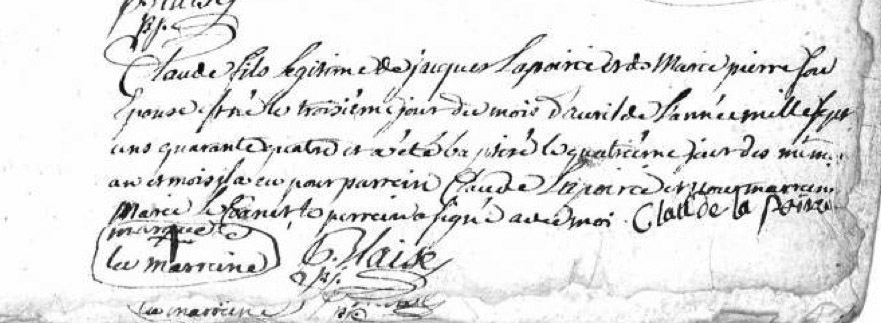 Claude fils legitime de jacques Lapoirce et de Marie pierre son
Epouse est né le troisième jour du mois d'avril de l'année mille sept
cens quarante quatre et a été baptisé le quatrième jour des même
an et mois il a eu pour parrein Claude Lapoirce et pour marreine
Marie le parrein a signé avec moi. Claude de la Poirce
marque de
la marreine
B. Blaise
la marreine